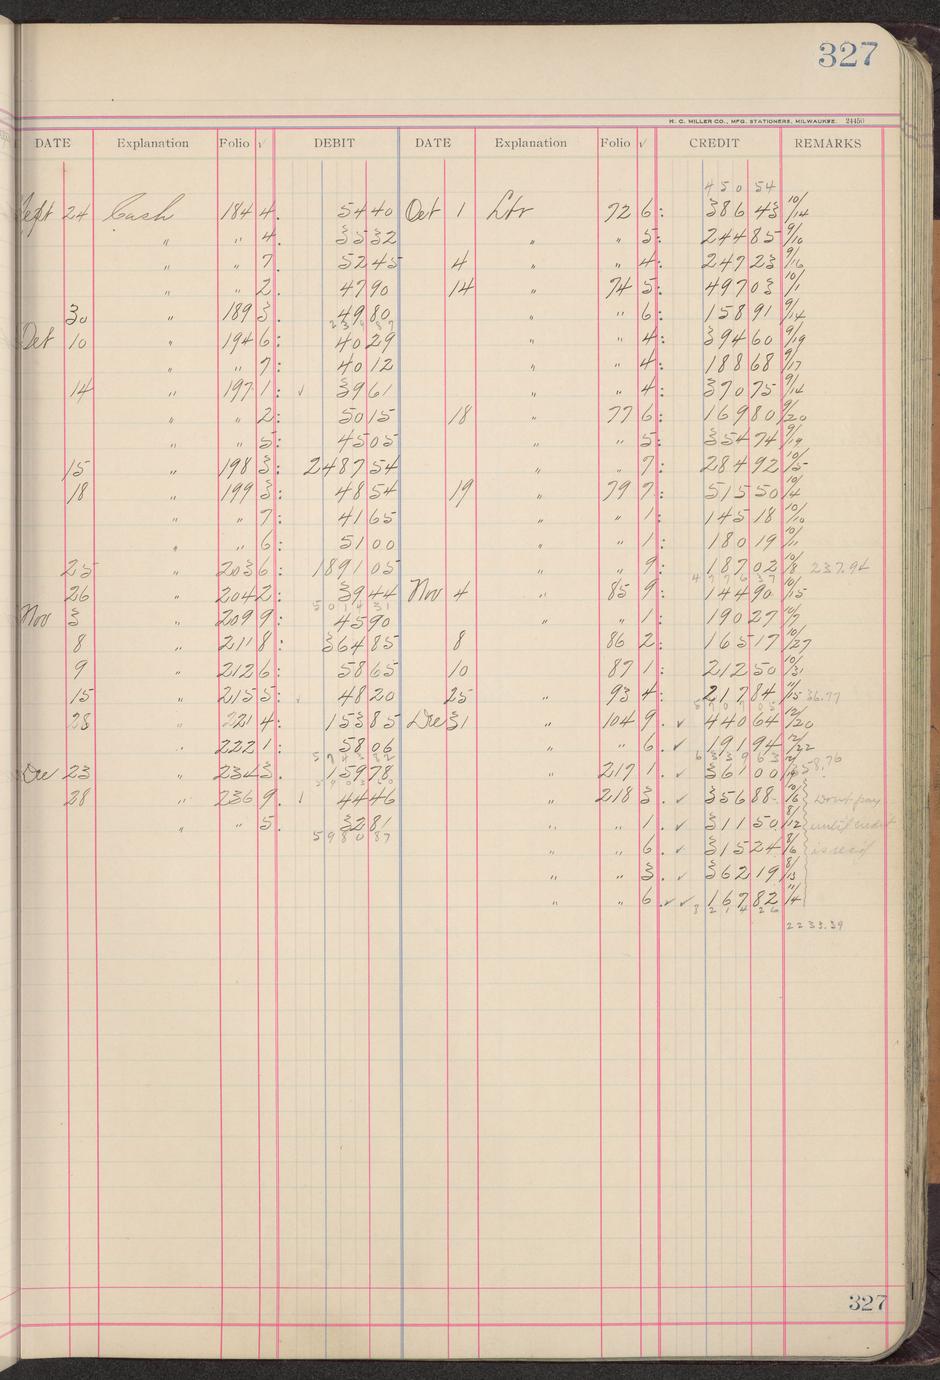 327
H. C. MILLER CO., MFG. STATIONERS, MILWAUKEE. 24450
DATE Explanation Folio √ DEBIT DATE Explanation Folio √ CREDIT REMARKS
450 54
Sept 24 Cash 184 4. 54 40 Oct 1 Ltr 72 6: 386 43 10/14
" " 4. 35 32 " " 5: 244 85 9/10
" " 7. 52 45 4 " " 4: 247 23 9/16
" " 2. 47 90 14 " 74 5: 497 03 10/1
30 " 189 3. 49 80 " " 6: 158 91 9/14
Oct 10 " 194 6: 40 29 " " 4: 394 60 9/19
" " 7: 40 12 " " 4: 188 68 9/17
14 " 197 1: ✓ 39 61 " " 4: 370 75 9/14
" " 2: 50 15 18 " 77 6: 169 80 9/20
" " 5: 45 05 " " 5: 354 74 9/19
15 " 198 3: 2487 54 " " 7: 284 92 10/5
18 " 199 3: 48 54 19 " 79 7: 515 50 10/4
" " 7: 41 65 " " 1: 145 18 10/10
" " 6: 51 00 " " 1: 180 19 10/11
25 " 203 6: 1891 05 " " 9: 187 02 10/8 237.94
4776 37
26 " 204 2: 39 44 Nov 4 " 85 9: 144 90 10/15
5014 31
Nov 3 " 209 9: 45 90 " " 1: 190 27 10/7
8 " 211 8: 364 85 8 " 86 2: 165 17 10/27
9 " 212 6: 58 65 10 " 87 1: 212 50 10/31
15 " 215 5: 48 20 25 " 93 4: 217 84 11/15 36.77
5707 05
28 " 221 4: 153 85 Dec 31 " 104 9. ✓ 440 64 12/20
" 222 1: 58 06 " " 6. ✓ 191 94 12/22
6339 63
Dec 23 " 234 3. 159 78 " 217 1. ✓ 361 00 358.76
28 " 236 9. ✓ 44 46 " 218 3. ✓ 356 88 10/16 Dont pay
" " 5. 32 81 " " 1. ✓ 311 50 8/12 until credit
5980 87
" " 6. ✓ 315 24 8/6 is rec'd
" " 3. ✓ 362 19 8/13
" " 6. ✓✓ 167 82 11/4
8214 26
2233.39
327